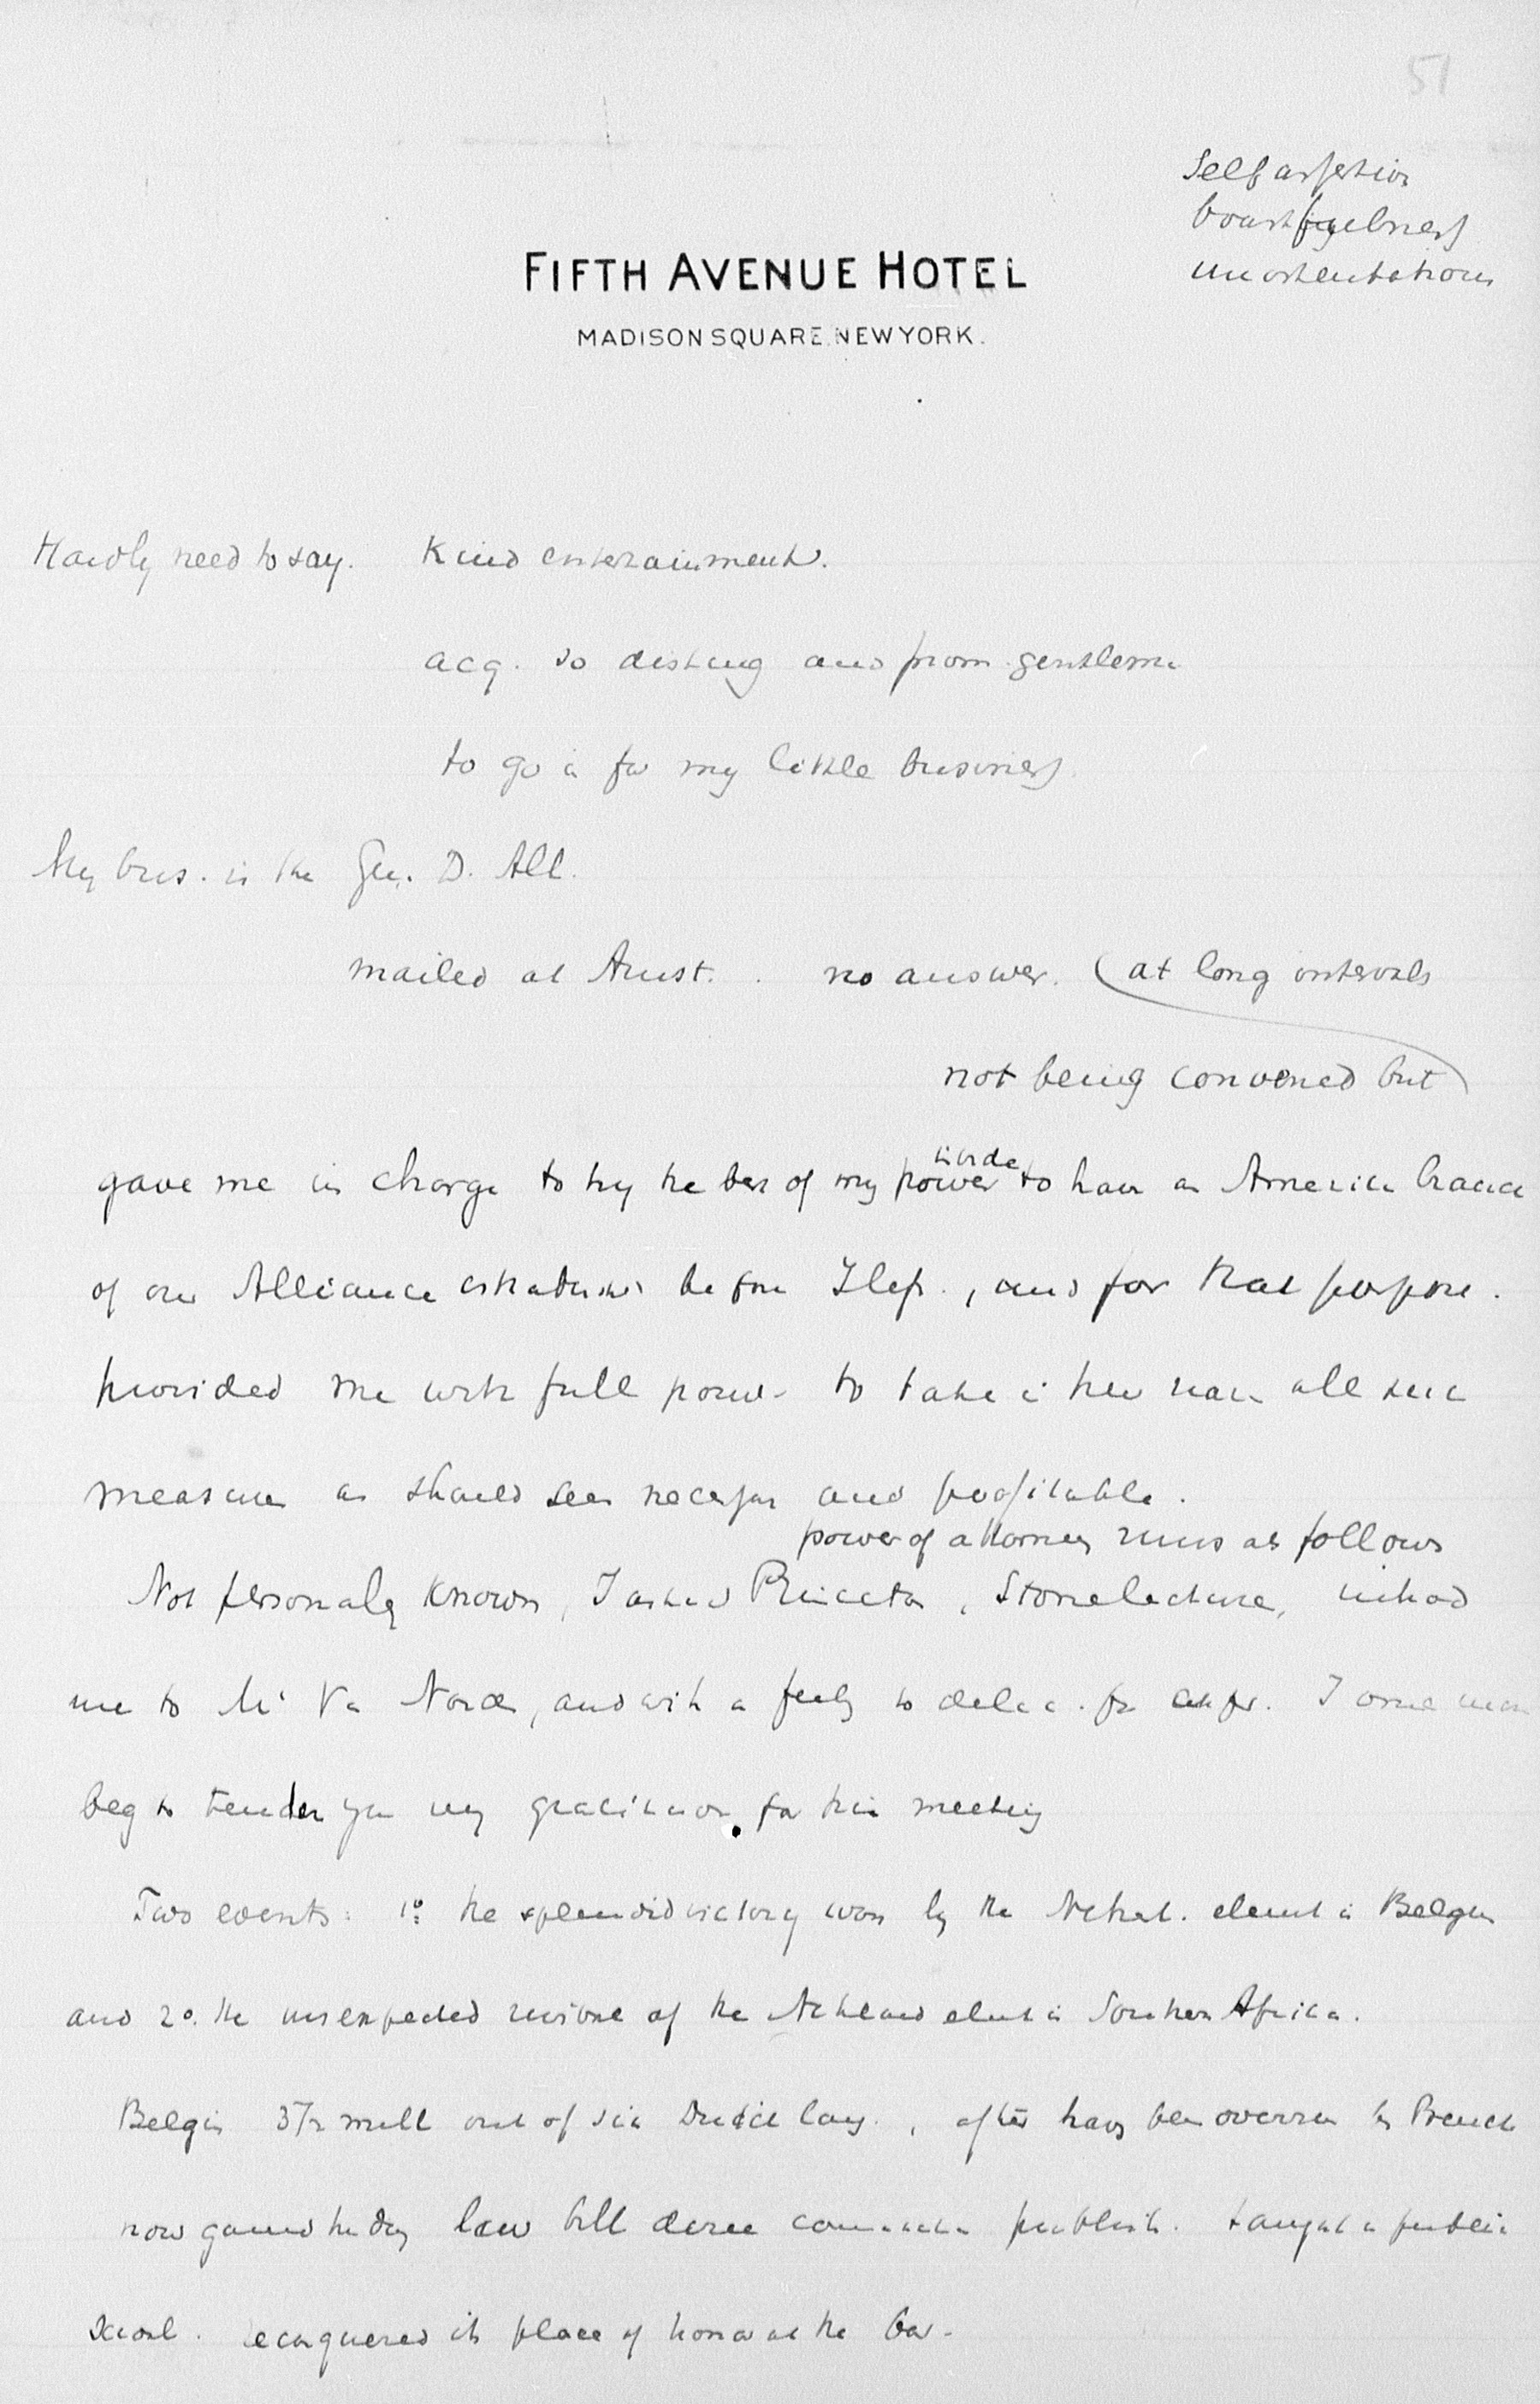 51
Self assertion
boastfulness
unostentatious
FIFTH AVENUE HOTEL
MADISON SQUARE. NEW YORK.
Hardly need to say. Kind entertainment.
acq. so disting and prom. gentlem
to go in for my little business
My bus. is the Gen. D. All.
mailed at Amst. . no answer. (at long intervals
not being convened but)
gave me in charge to try the best of my power to have an America branch
of our Alliance before I left., and for that purpose.
provided me with full power to take in their name all such
measures as should seem necessar and profitable.
power of attorney runs as follows
Not personaly known, I asked Princeton, Stonelecture,
me to Mr Van Norden, and with a feeling I once more
beg to tender you my gratitude for this meeting
Two events: 1º the splendid victory won by the Nethel. element in Belgium
and 2º. the unexpected revival of the Netherland element in Southern Africa.
Belgium 3½ mill out of six Dutch lang., after having been overrun by French
now gained the day law bill decree publish. taught in public
school. reconquered its place of honor at the bar.